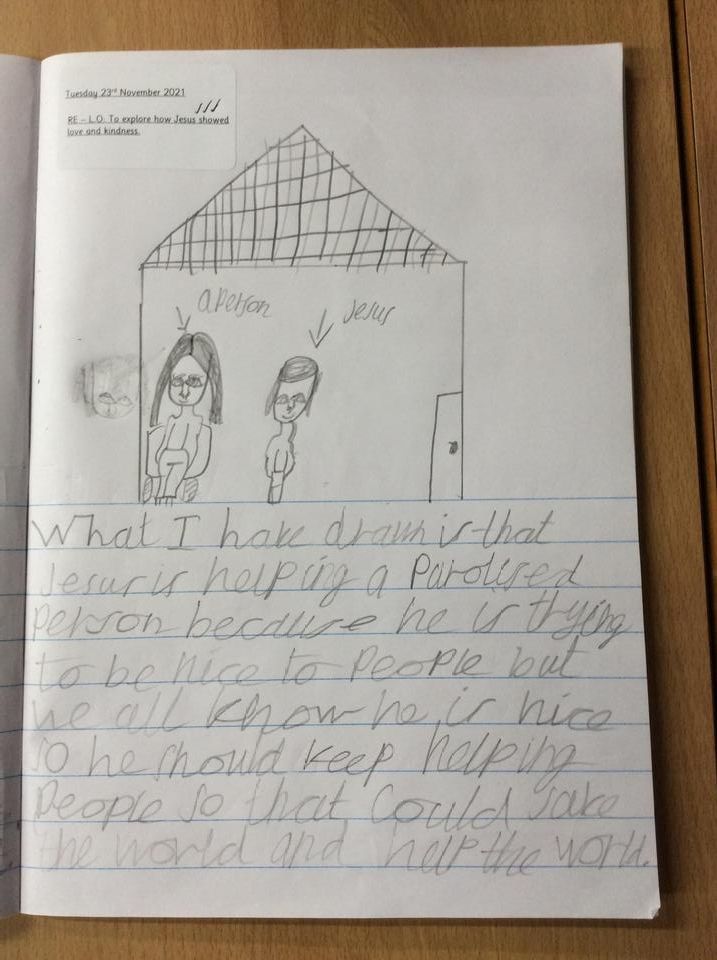 Tuesday 23rd November 2021
RE – L.O. To explore how Jesus showed
love and kindness.
a person
Jesus
What I have drawn is that
Jesus is helping a Paralised
Person because he is trying
to be nice to People but
we all know he is nice
so he should keep helping
People so that could sake
the world and help the world.